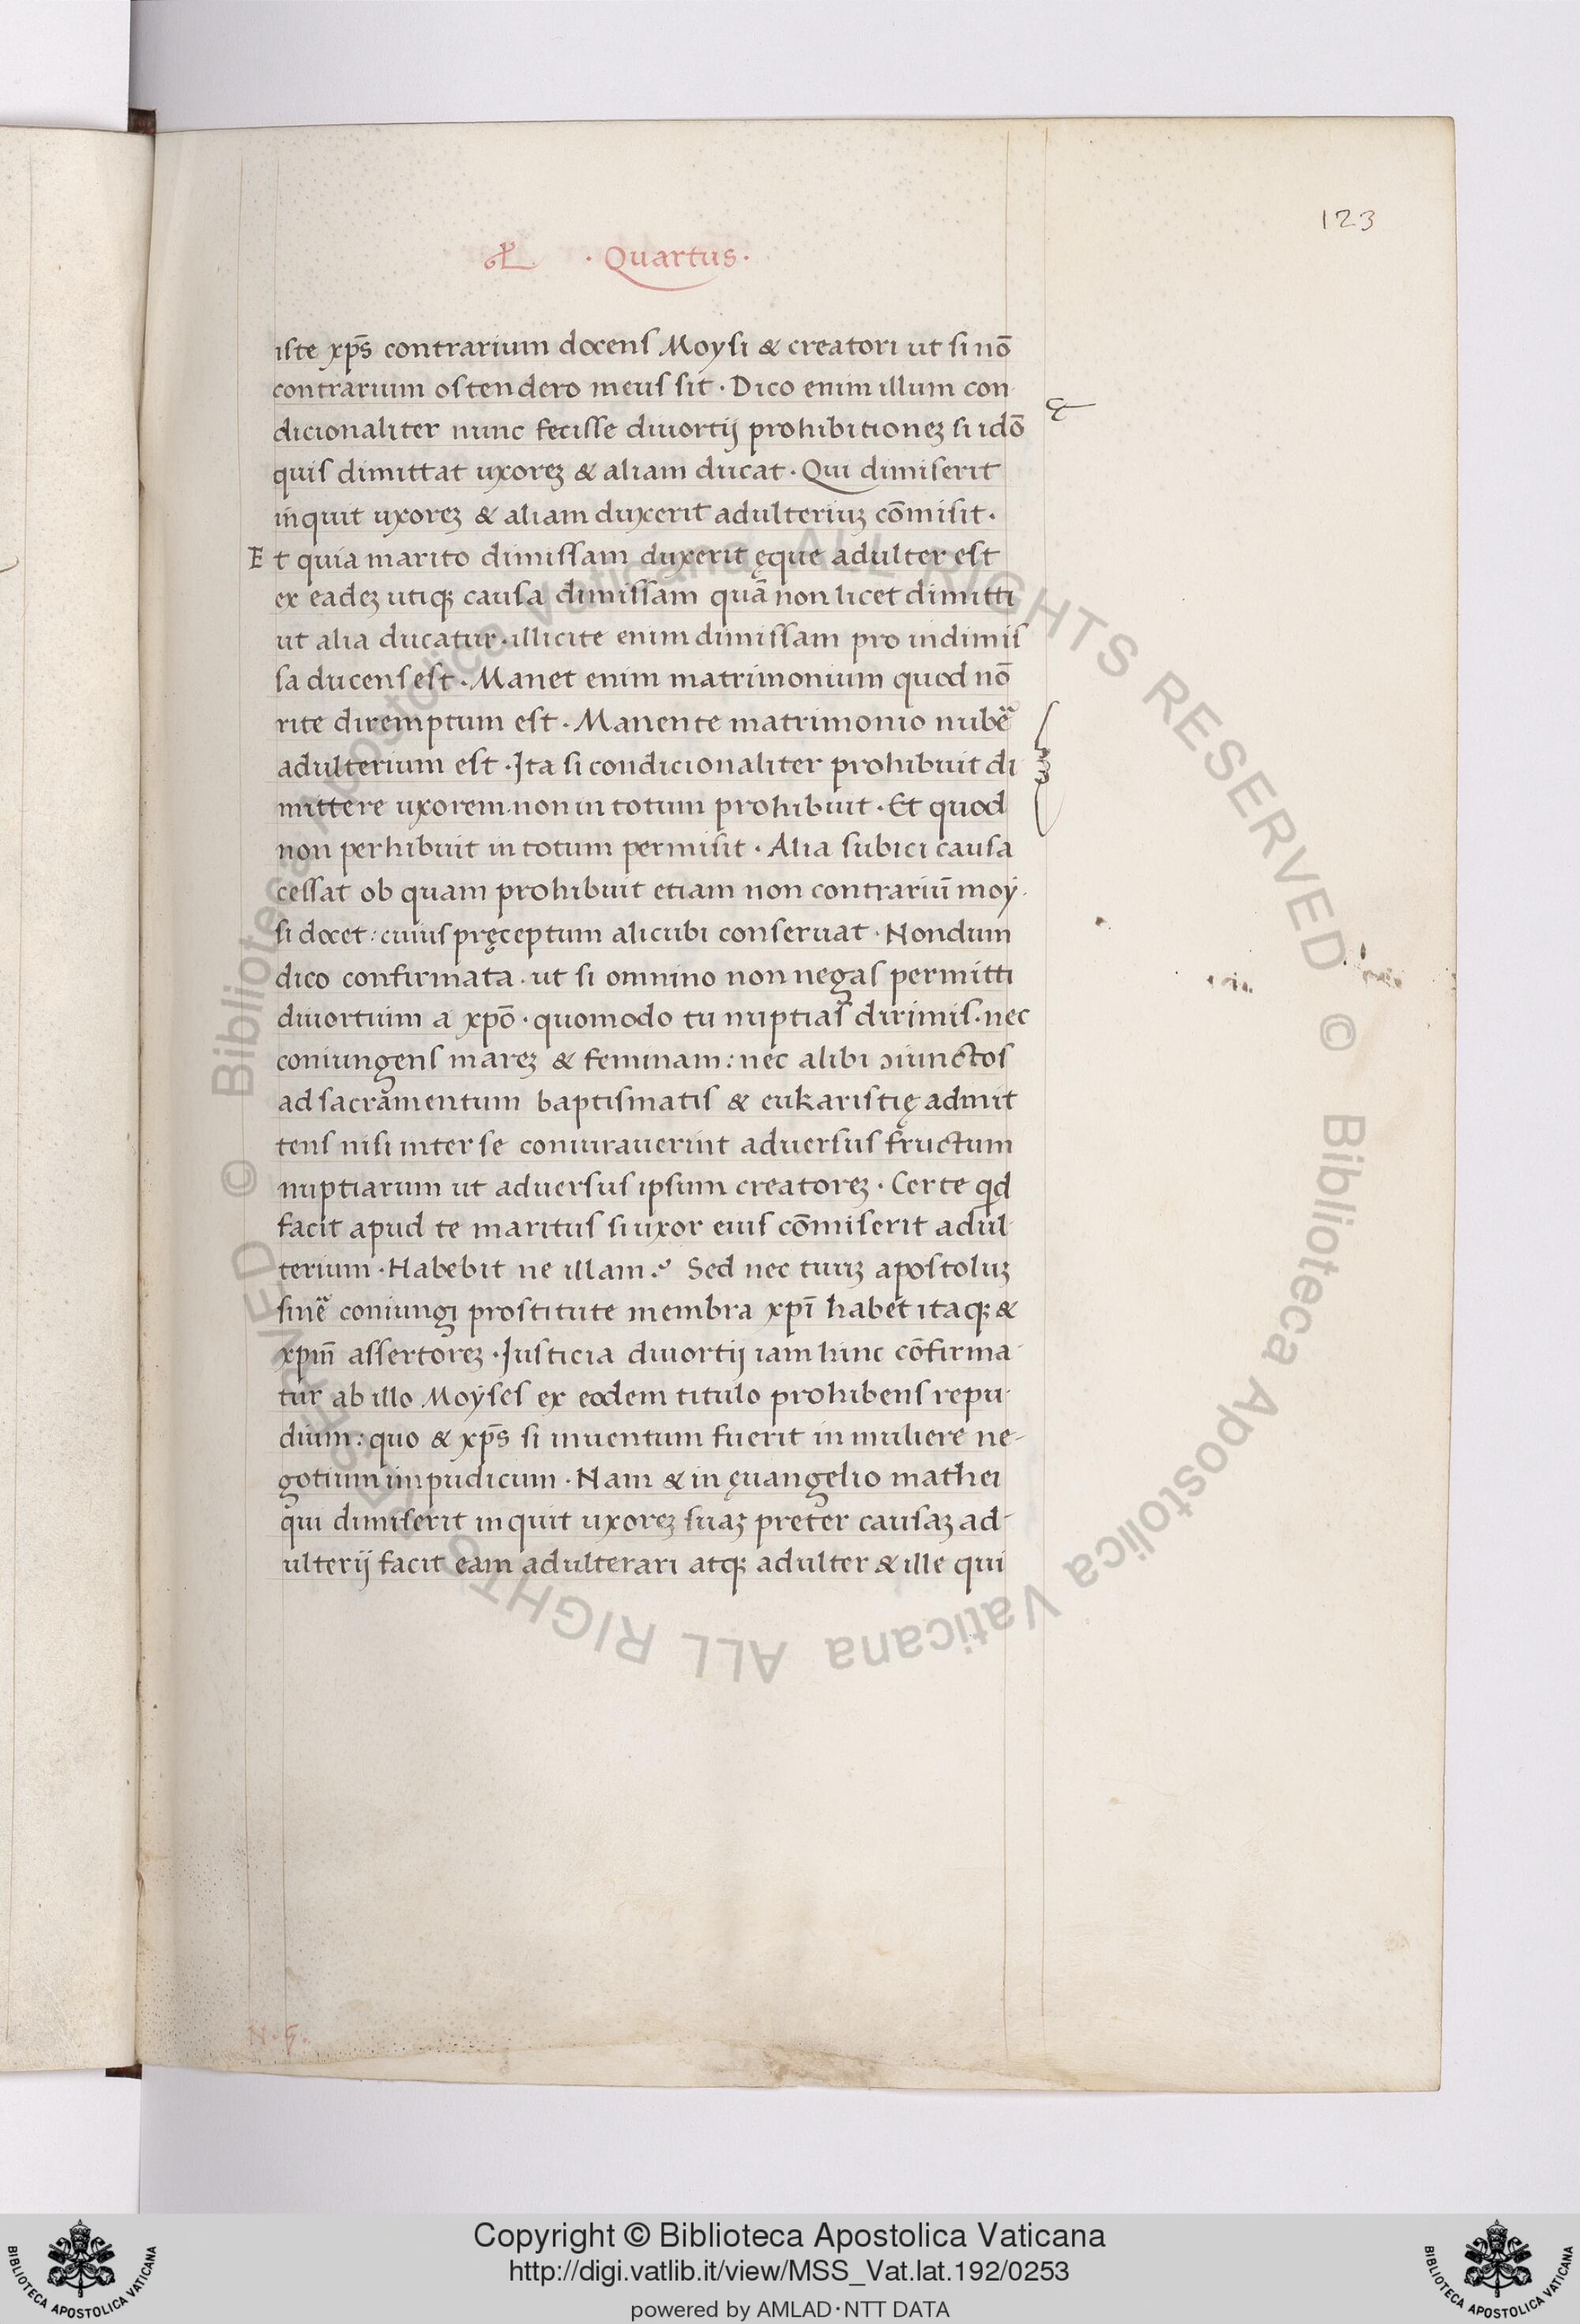 123
· Quartus ·
iste xp̄s contrarium docens Moysi & creatori ut si nō
contrarium ostendero meus sit · Dico enim illum con
dicionaliter nunc fecisse diuortij prohibitioneʒ si idō
quis dimittat uxoreʒ & aliam ducat · Qui dimiserit
inquit uxoreʒ & aliam duxerit adulteriuʒ cōmisit ·
Et quia marito dimissam duxerit ęque adulter est
ex eadeʒ utiqꝫ causa dimissam quā non licet dimitti
ut alia ducatur · illicite enim dimissam pro indimis
sa ducens est · Manet enim matrimonium quod nō
rite diremptum est · Manente matrimonio nubē
adulterium est · Ita si condicionaliter prohibuit di
mittere uxorem · non in totum prohibuit · Et quod
non perhibuit in totum permisit · Alia subici causa
cessat ob quam prohibuit etiam non contrariū moy
si docet : cuius pręceptum alicubi conseruat · Nondum
dico confirmata · ut si omnino non negas permitti
diuortium a xp̄o · quomodo tu nuptias dirimis · nec
coniungens mareʒ & feminam : nec alibi ɔiunctos
ad sacramentum baptismatis & eukaristię admit
tens nisi inter se coniurauerint aduersus fructum
nuptiarum ut aduersus ipsum creatoreʒ · Certe qd
facit apud te maritus si uxor eius cōmiserit adul
terium · Habebit ne illam ? Sed nec tuuʒ apostoluʒ
sinē coniungi prostitute membra xp̄i habet itaqꝫ &
xpm̄ assertoreʒ · Justicia diuortij iam hinc cōfirma
tur ab illo Moyses ex eodem titulo prohibens repu
dium : quo & xp̄s si inuentum fuerit in muliere ne-
gotium impudicum · Nam & in ęuangelio mathei
qui dimiserit inquit uxoreʒ suaʒ preter causaʒ ad-
ulterij facit eam adulterari atqꝫ adulter & ille qui
© Biblioteca Apostolica Vaticana ALL RIGHTS RESERVED © Biblioteca Apostolica Vaticana ALL RIGHTS RESERVED
Copyright © Biblioteca Apostolica Vaticana
http://digi.vatlib.it/view/MSS_Vat.lat.192/0253
powered by AMLAD·NTT DATA
BIBLIOTECA APOSTOLICA VATICANA
BIBLIOTECA APOSTOLICA VATICANA